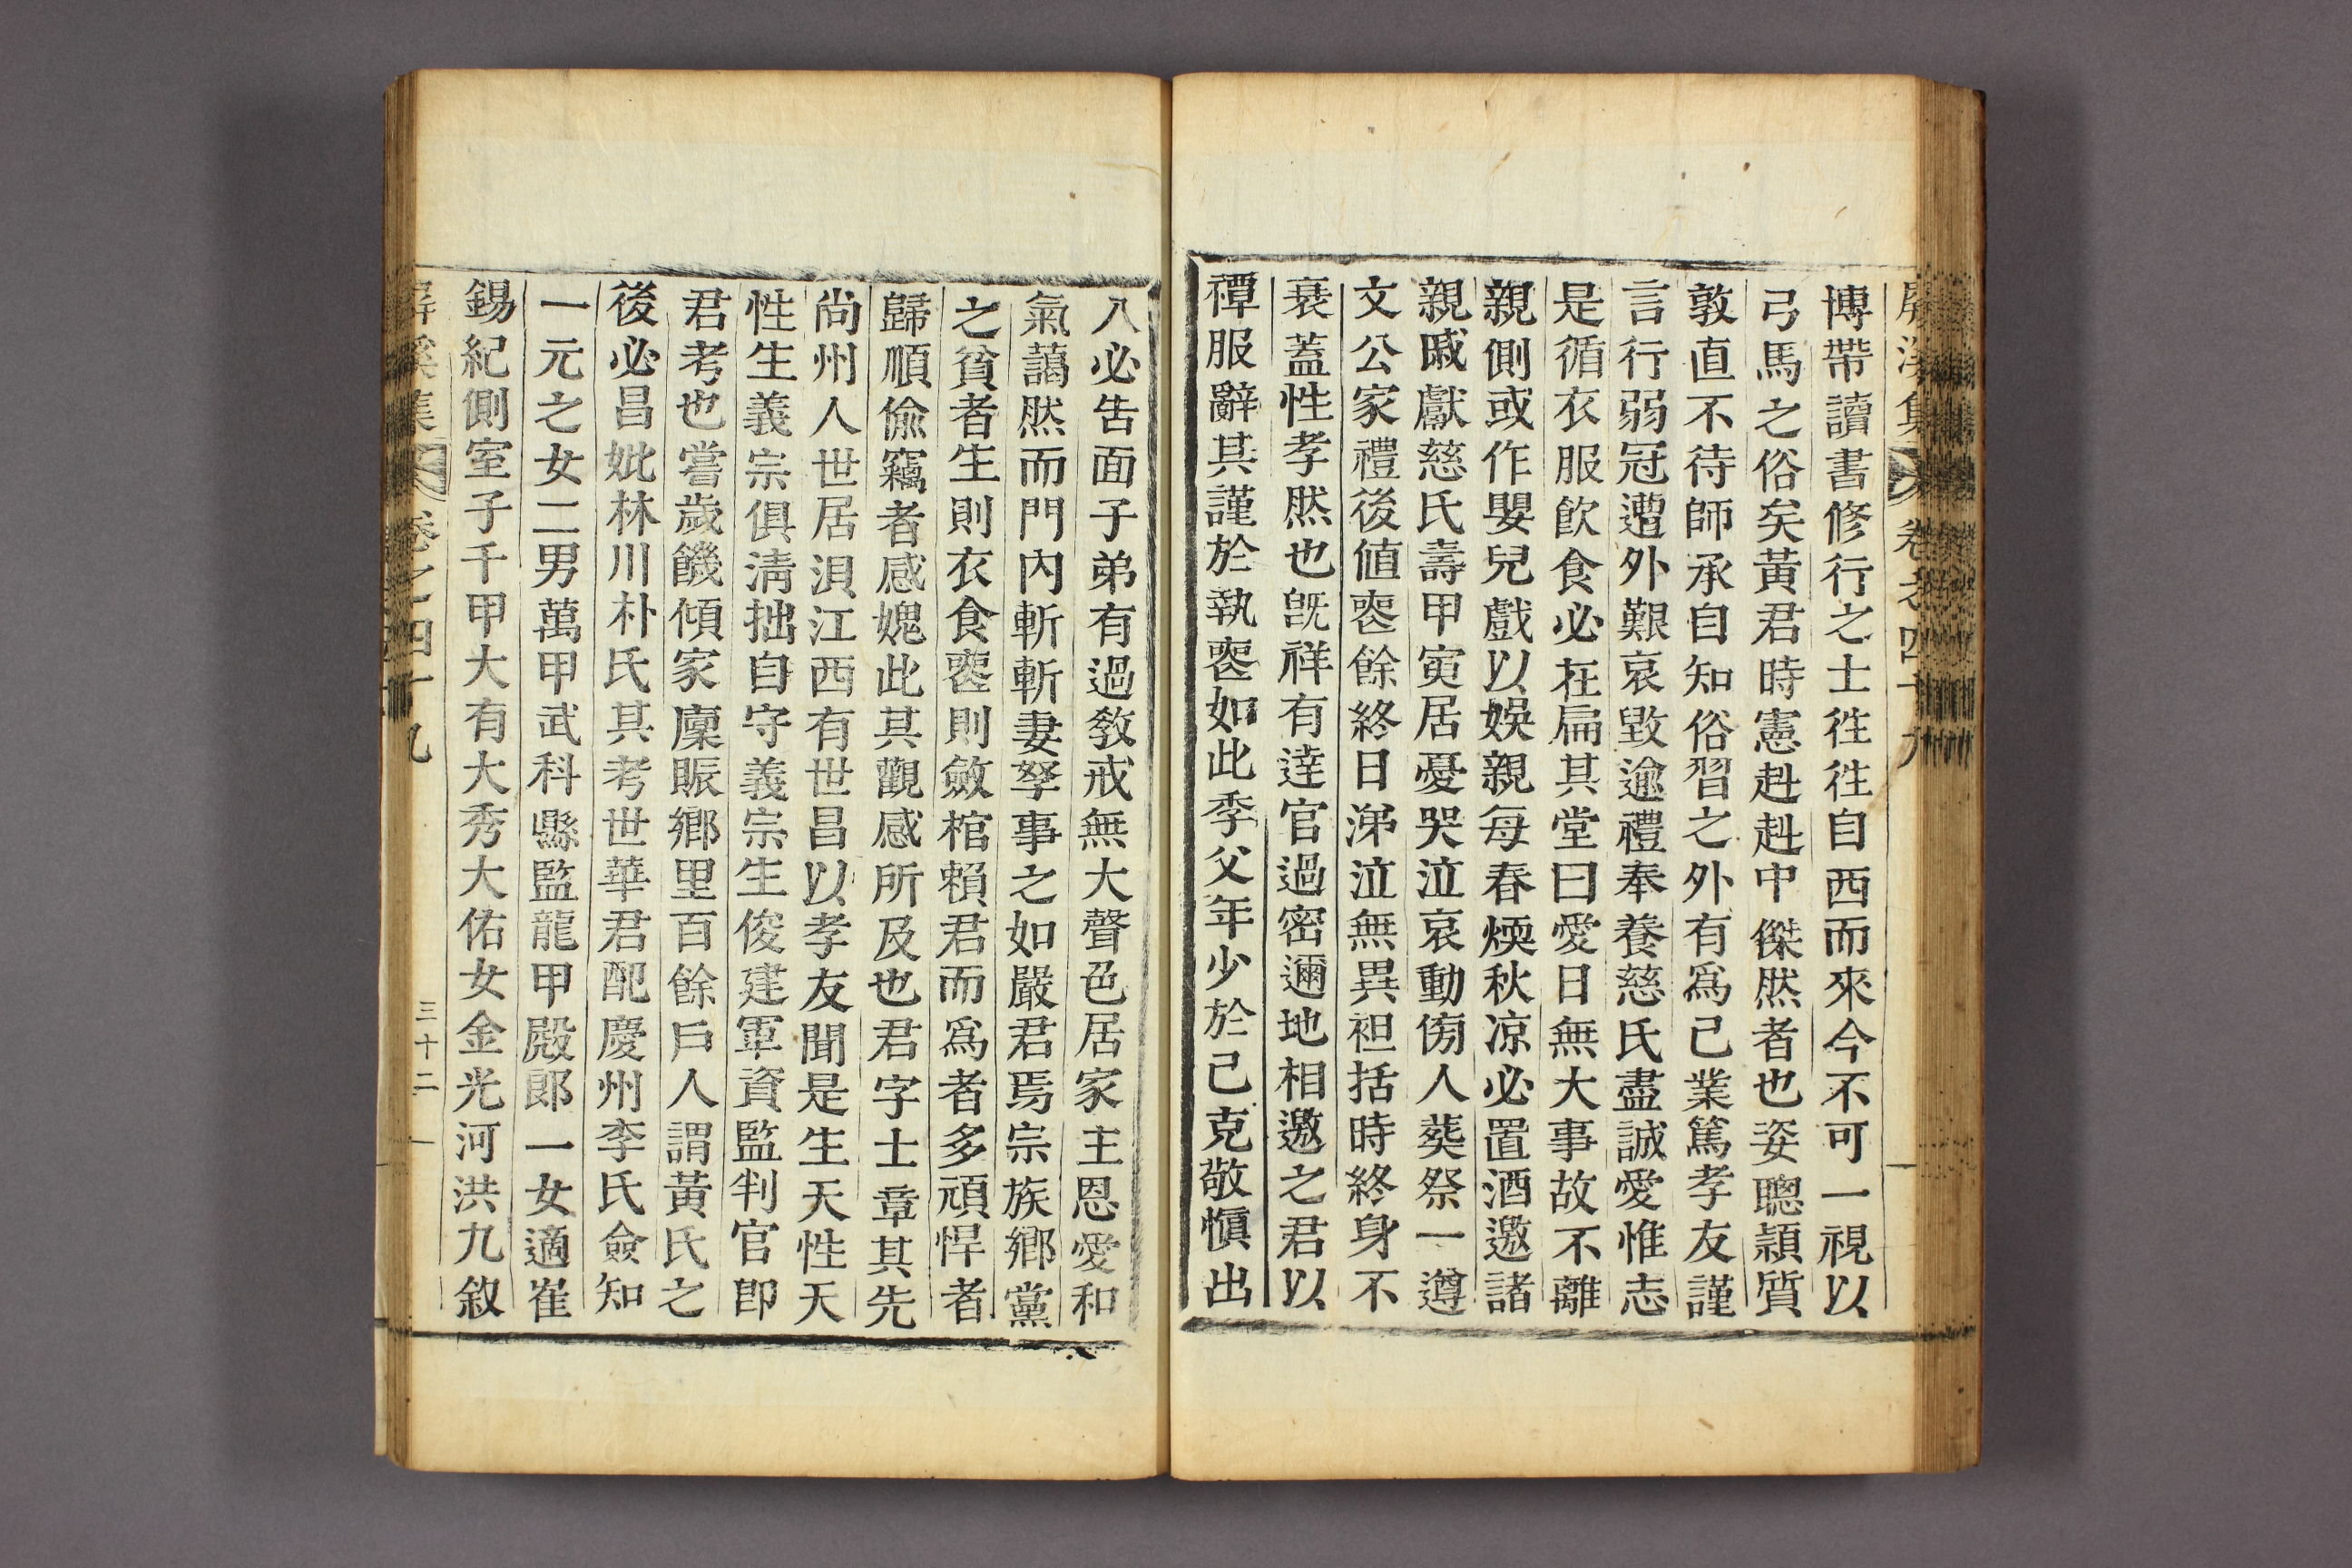 屏溪集 卷之四十九
博帶讀書修行之士徃徃自西而來今不可一視以
弓馬之俗矣黃君時憲赳赳中傑然者也姿聰穎質
敦直不待師承自知俗習之外有爲己業篤孝友謹
言行弱冠遭外艱哀毀逾禮奉養慈氏盡誠愛惟志
是循衣服飮食必在扁其堂曰愛日無大事故不離
親側或作嬰兒戲以娛親每春煗秋凉必置酒邀諸
親戚獻慈氏壽甲寅居憂哭泣哀動傍人葬祭一遵
文公家禮後値喪餘終日涕泣無異袒括時終身不
衰蓋性孝然也旣祥有達官過密邇地相邀之君以
禫服辭其謹於執喪如此季父年少於己克敬愼出
入必告面子弟有過敎戒無大聲色居家主恩愛和
氣藹然而門內斬斬妻孥事之如嚴君焉宗族鄕黨
之貧者生則衣食喪則斂棺賴君而爲者多頑悍者
歸順偸竊者感媿此其觀感所及也君字士章其先
尙州人世居浿江西有世昌以孝友聞是生天性天
性生義宗俱淸拙自守義宗生俊建軍資監判官卽
君考也嘗歲饑傾家廩賑鄕里百餘戶人謂黃氏之
後必昌妣林川朴氏其考世華君配慶州李氏僉知
一元之女二男萬甲武科縣監龍甲殿郞一女適崔
錫紀側室子千甲大有大秀大佑女金光河洪九敘
屏溪集 卷之四十九 三十二